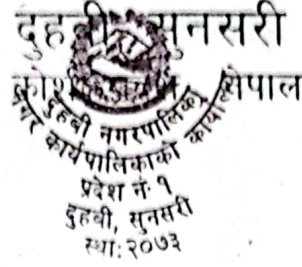 दुहवी, सुनसरी
नेपाल
दुहवी नगरपालिका
नगर कार्यपालिकाको कार्यालय
प्रदेश नं. १
दुहवी, सुनसरी
स्था: २०७३